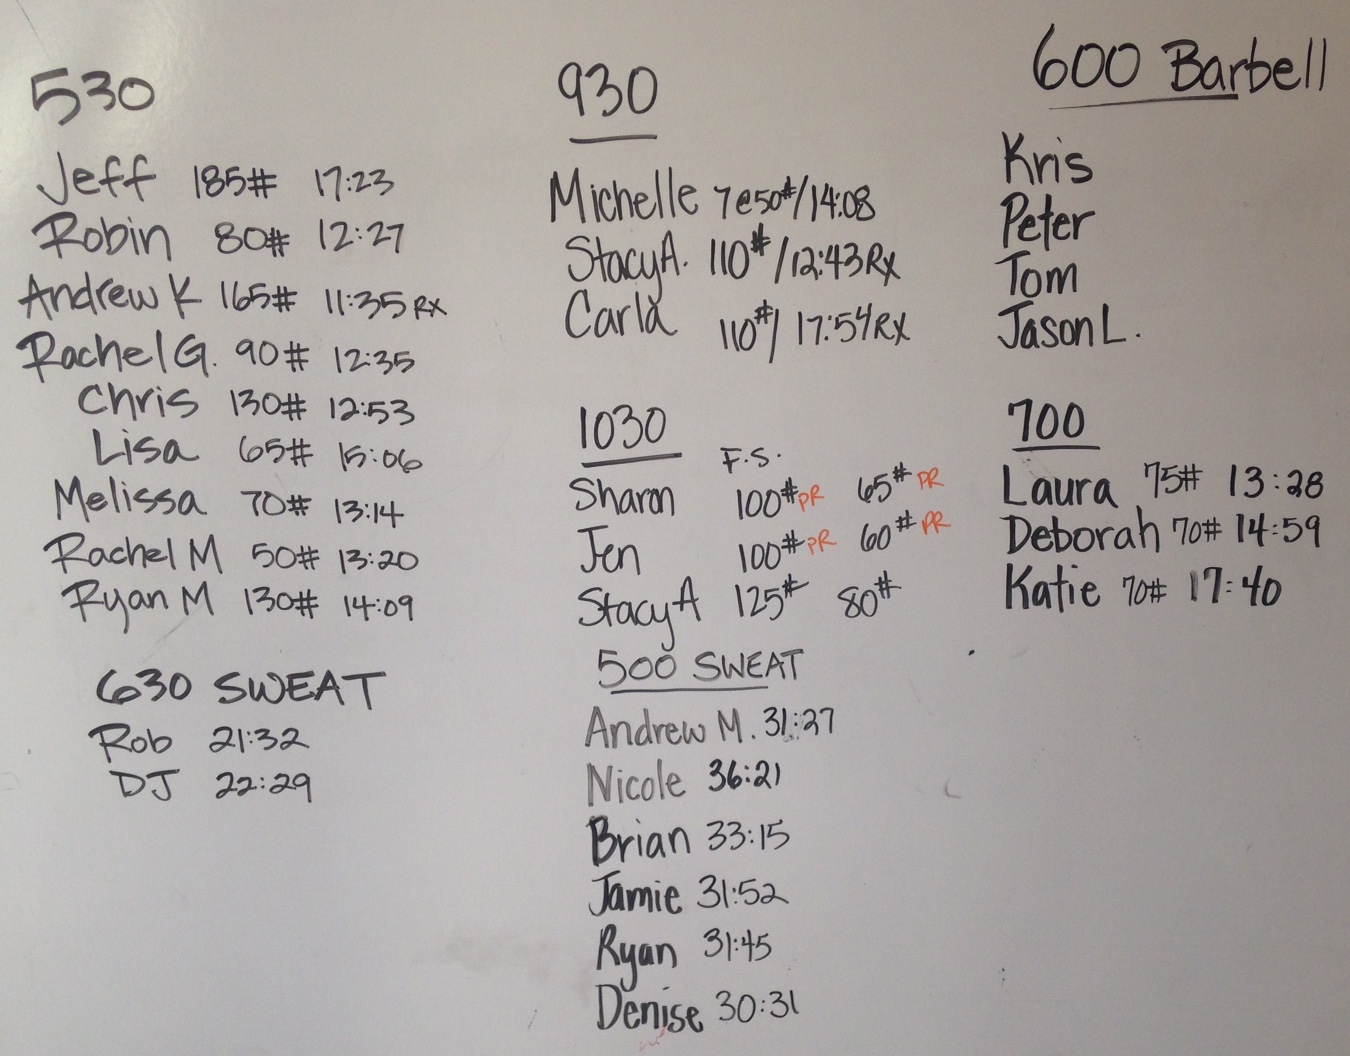 530
Jeff 185# 17:23
Robin 80# 12:27
Andrew K 165# 11:35 RX
Rachel G. 90# 12:35
Chris 130# 12:53
Lisa 65# 15:06
Melissa 70# 13:14
Rachel M 50# 13:20
Ryan M 130# 14:09
630 SWEAT
Rob 21:32
DJ 22:29
930
Michelle 7@50#/14:08
Stacy A. 110#/12:43 RX
Carla 110#/17:54 RX
1030
F.S.
Sharon 100# PR 65# PR
Jen 100# PR 60# PR
Stacy A 125# 80#
500 SWEAT
Andrew M. 31:27
Nicole 36:21
Brian 33:15
Jamie 31:52
Ryan 31:45
Denise 30:31
600 Barbell
Kris
Peter
Tom
Jason L.
700
Laura 75# 13:28
Deborah 70# 14:59
Katie 70# 17:40